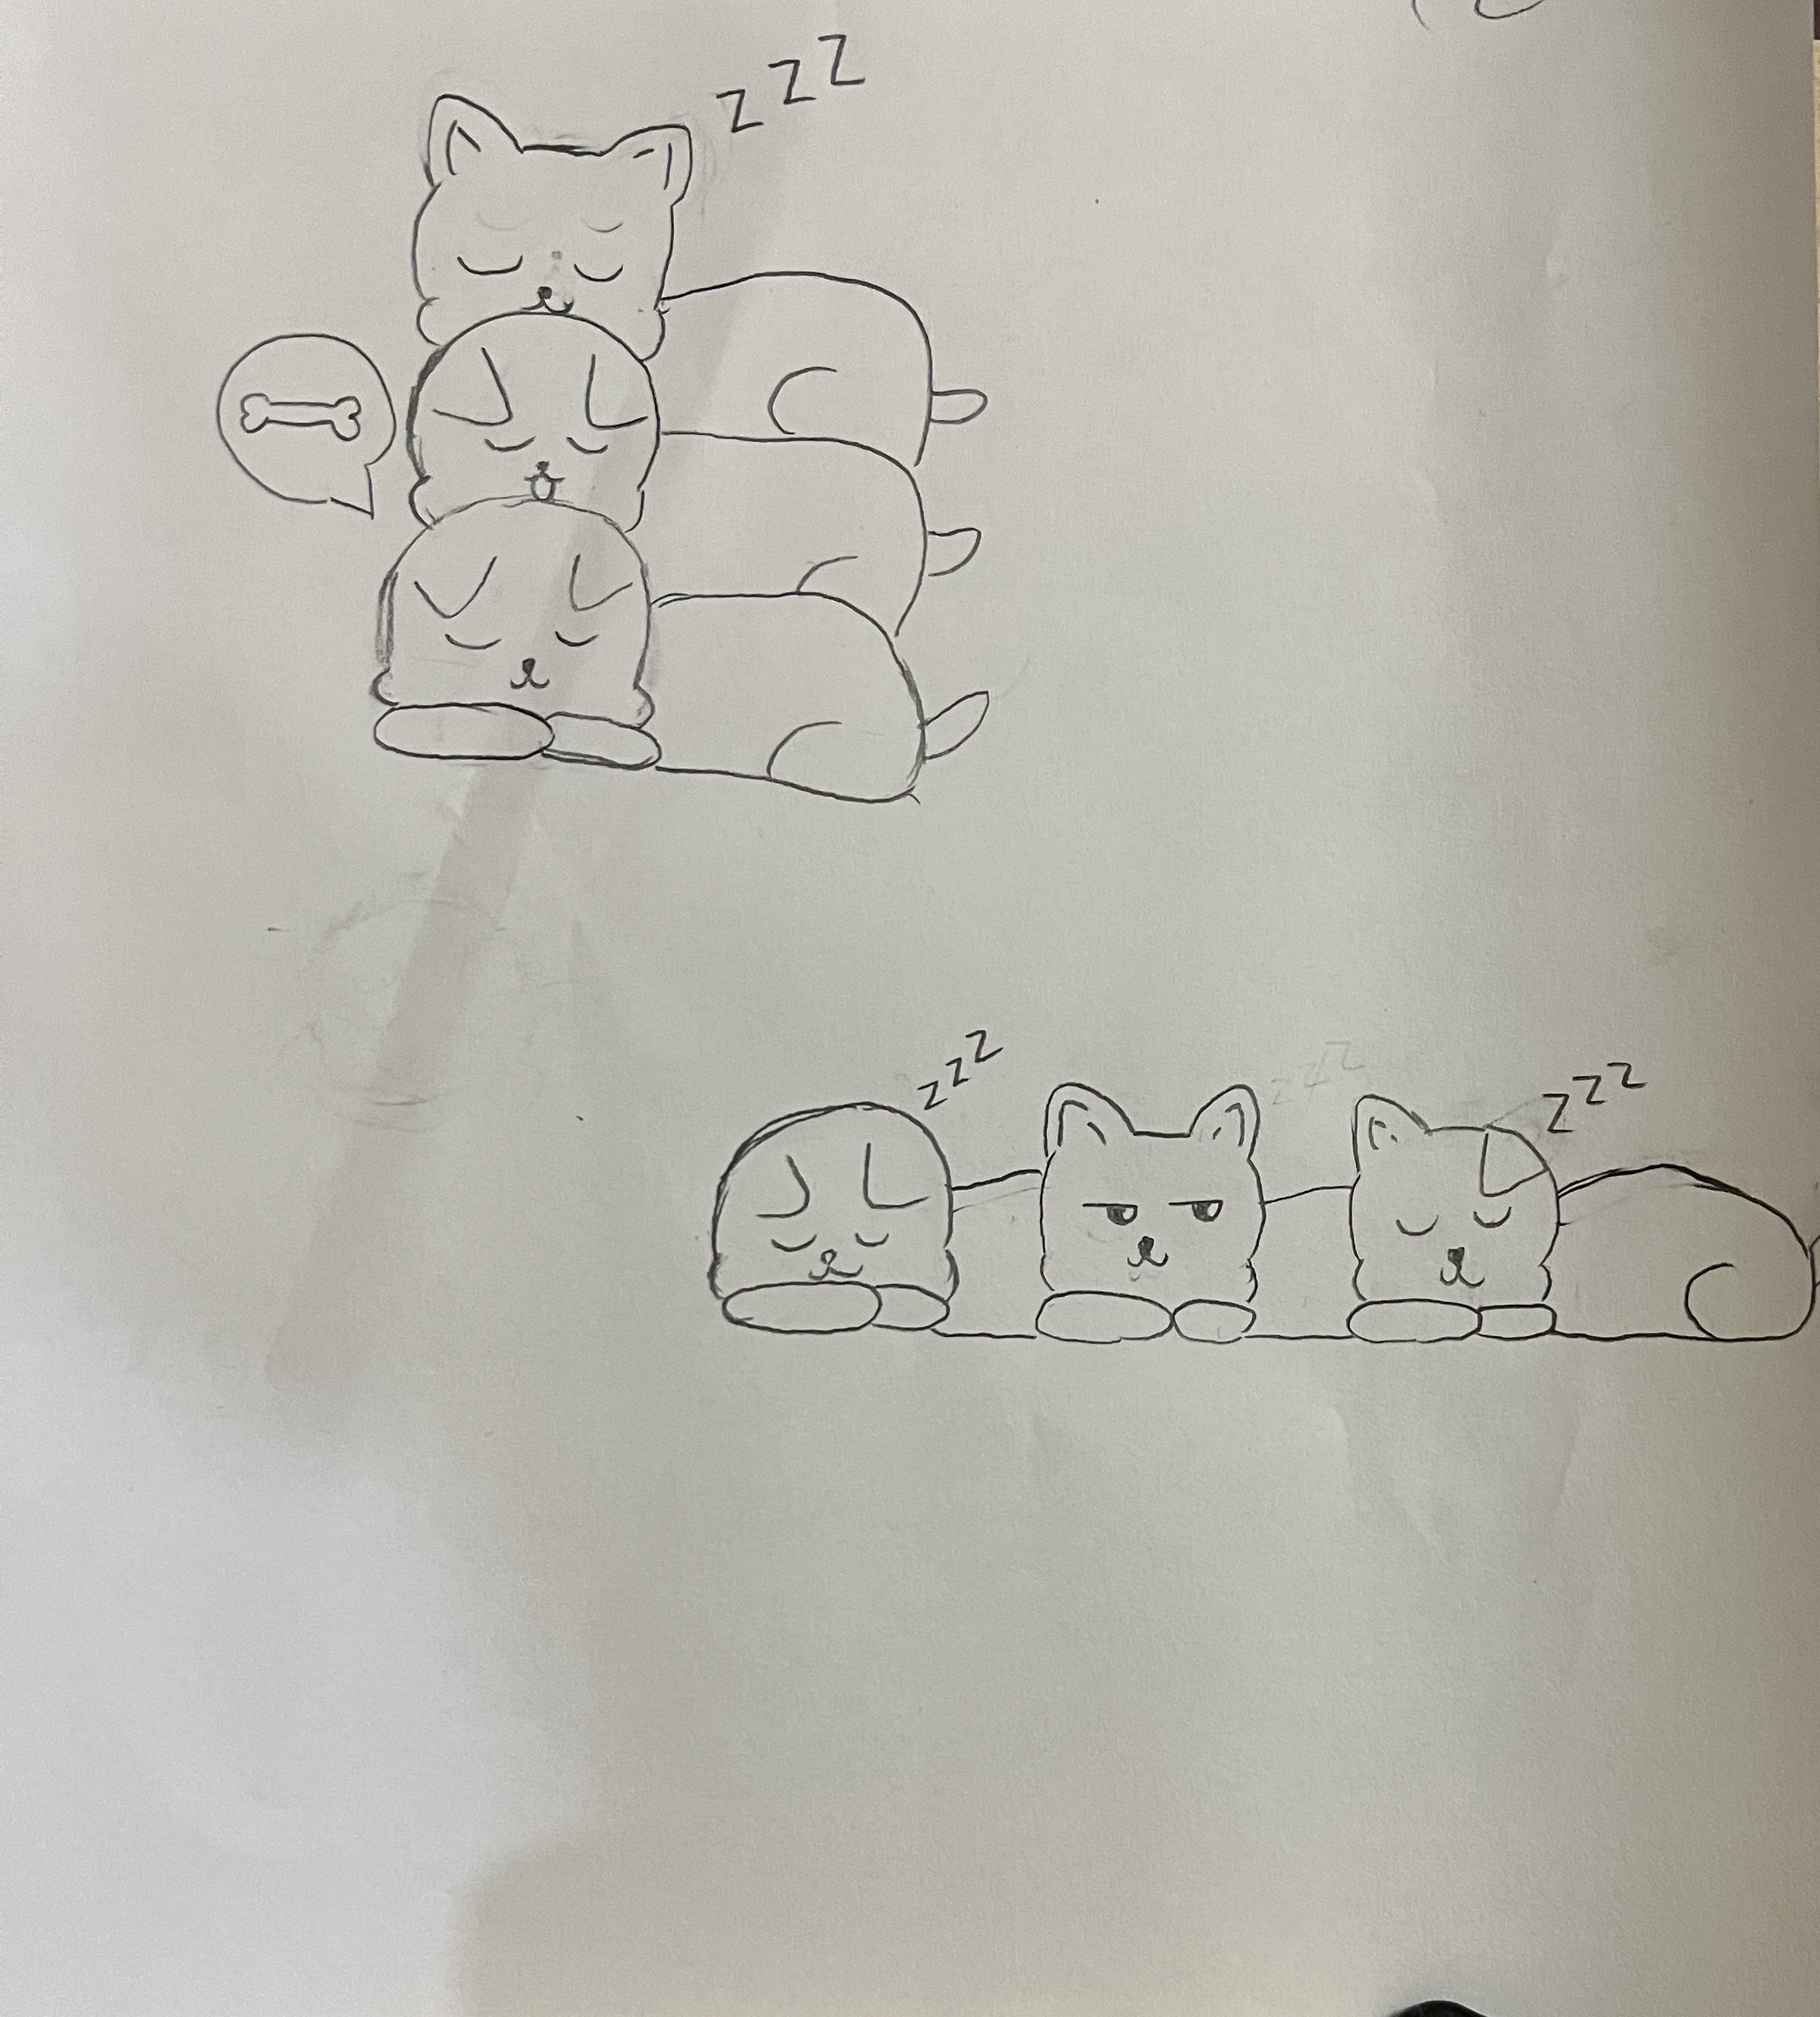 z z z
z z z
z z z
z z z